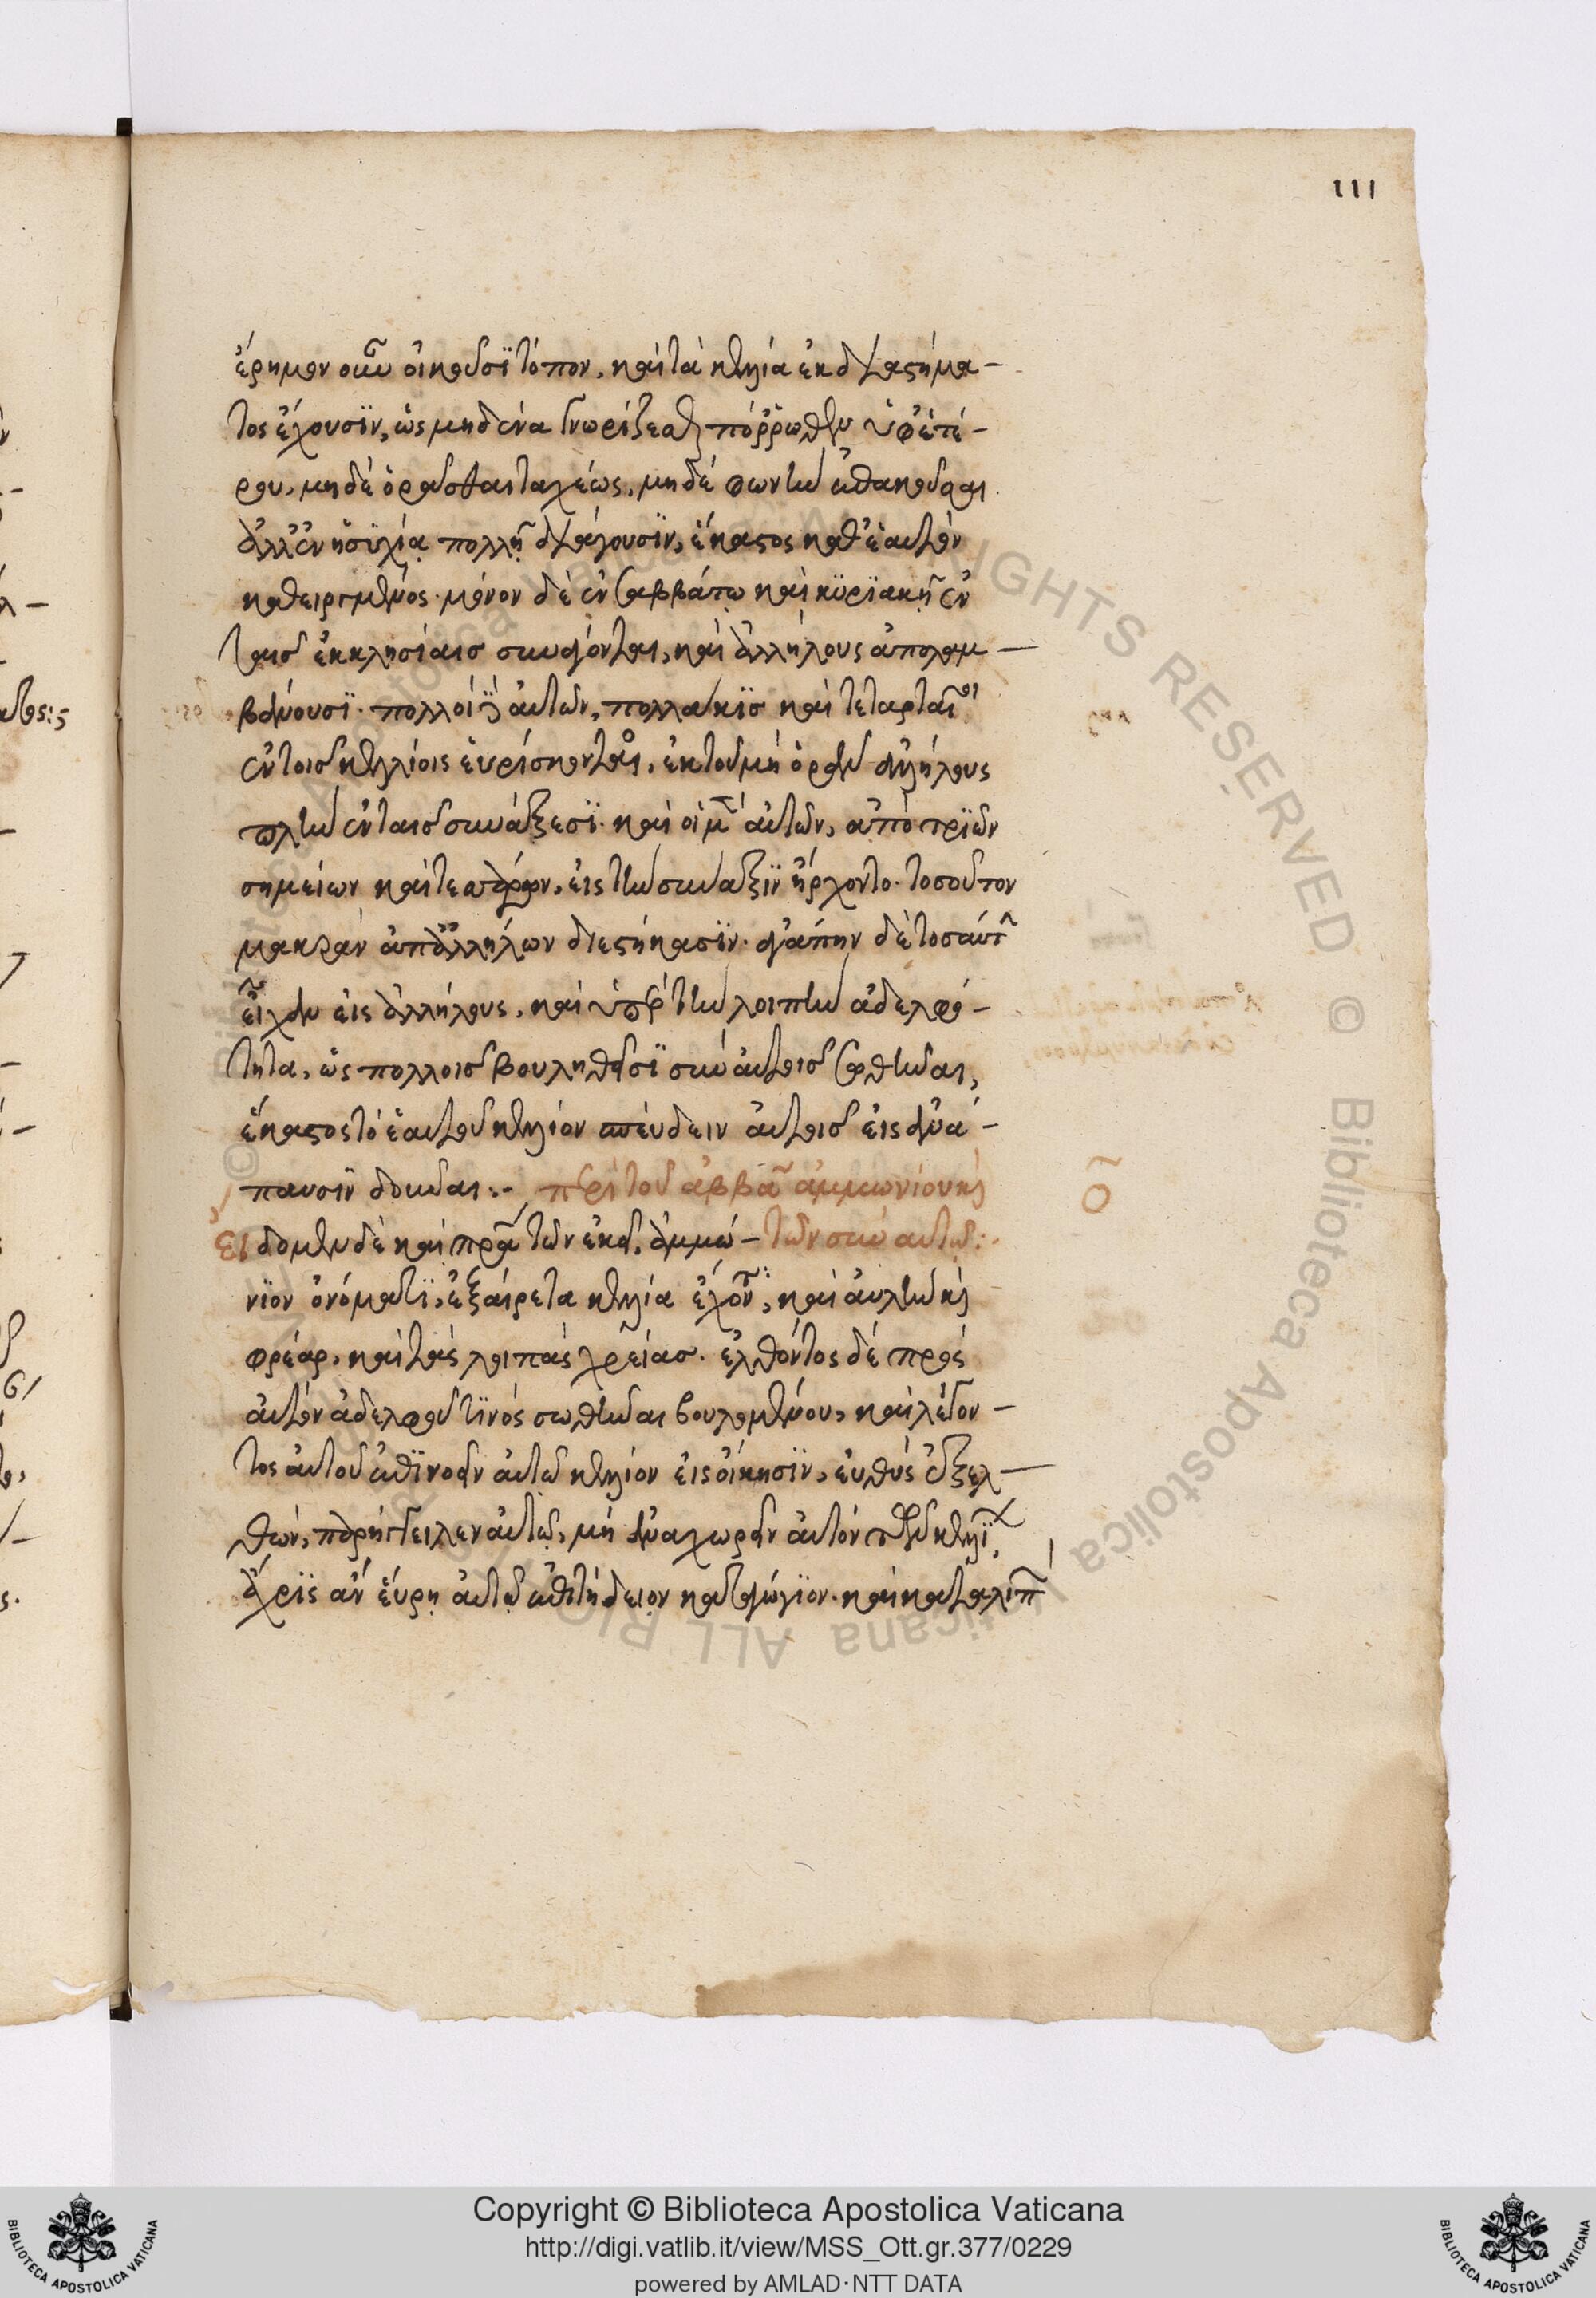 111
ἔρημον οὖν οἰκοῦσϊ τόπον, καὶ τὰ κελλία ἐκ διαστήμα-
τος ἔχουσϊν, ὡς μηδένα γνωρίζεσθαι πόῤῥωθεν ὑφ' ἑτέ-
ρου, μηδὲ ὁρᾶσθαι ταχέως, μηδὲ φωνὴν ἐπακοῦσαι.
ἀλλ' ἐν ἡσϋχίᾳ πολλῇ διάγουσϊν, ἕκαστος καθ' ἑαυτὸν
καθειργμένος. μόνον δὲ ἐν σαββάτω καὶ κϋρϊακῇ ἐν
ταῖς ἐκκλησίαις συνάγονται, καὶ ἀλλήλους ἀπολαμ-
βάνουσϊ. πολλοὶ δὲ αὐτῶν, πολλάκϊς καὶ τεταρταῖοι
ἐν τοῖς κελλίοις εὑρίσκονται, ἐκ τοῦ μὴ ὁρᾶν ἀλλήλους
πλὴν ἐν ταῖς συνάξεσϊ. καὶ οἱ μὲν αὐτῶν, ἀπὸ τρϊῶν
σημείων καὶ τεσσάρων, εἰς τὴν σύναξϊν ἤρχοντο. τοσοῦτον
μακρὰν ἀπ' ἀλλήλων διεστήκασϊν. ἀγάπην δὲ τοσαύτην
εἶχον εἰς ἀλλήλους, καὶ ὑπὲρ τὴν λοιπὴν ἀδελφό-
τητα, ὡς πολλοῖς βουληθεῖσϊ σὺν αὐτοῖς σωθῆναι,
ἕκαστος τὸ ἑαυτοῦ κελλίον σπεύδειν αὐτοῖς εἰς ἀνά-
παυσϊν δοῦναι:- περὶ τοῦ ἀββᾶ ἀμμωνίου καὶ
εἴδομεν δὲ καὶ πρα τῶν ἐκεῖ, ἀμμώ- τῶν σὺν αὐτῶ:-
ο
νϊον ὀνόματϊ, ἐξαίρετα κελλία ἔχοντα, καὶ αὐλὴν καὶ
φρέαρ, καὶ τὰς λοιπὰς χρείας. ἐλθόντος δὲ πρὸς
αὐτὸν ἀδελφοῦ τϊνός σωθῆναι βουλομένου, καὶ λέγον-
τος αὐτοῦ ἐπϊνοεῖν αὐτῶ κελλίον εἰς οἴκησϊν, εὐθὺς ἐξελ-
θών, παρήγγειλεν αὐτῶ, μὴ ἀναχωρεῖν αὐτὸν τῶν κελλϊ
ἄχρϊς ἂν εὕρῃ αὐτῶ ἐπιτήδειον καταγώγϊον. καὶ καταλιπ
Copyright © Biblioteca Apostolica Vaticana
http://digi.vatlib.it/view/MSS_Ott.gr.377/0229
powered by AMLAD·NTT DATA
BIBLIOTECA APOSTOLICA VATICANA
BIBLIOTECA APOSTOLICA VATICANA